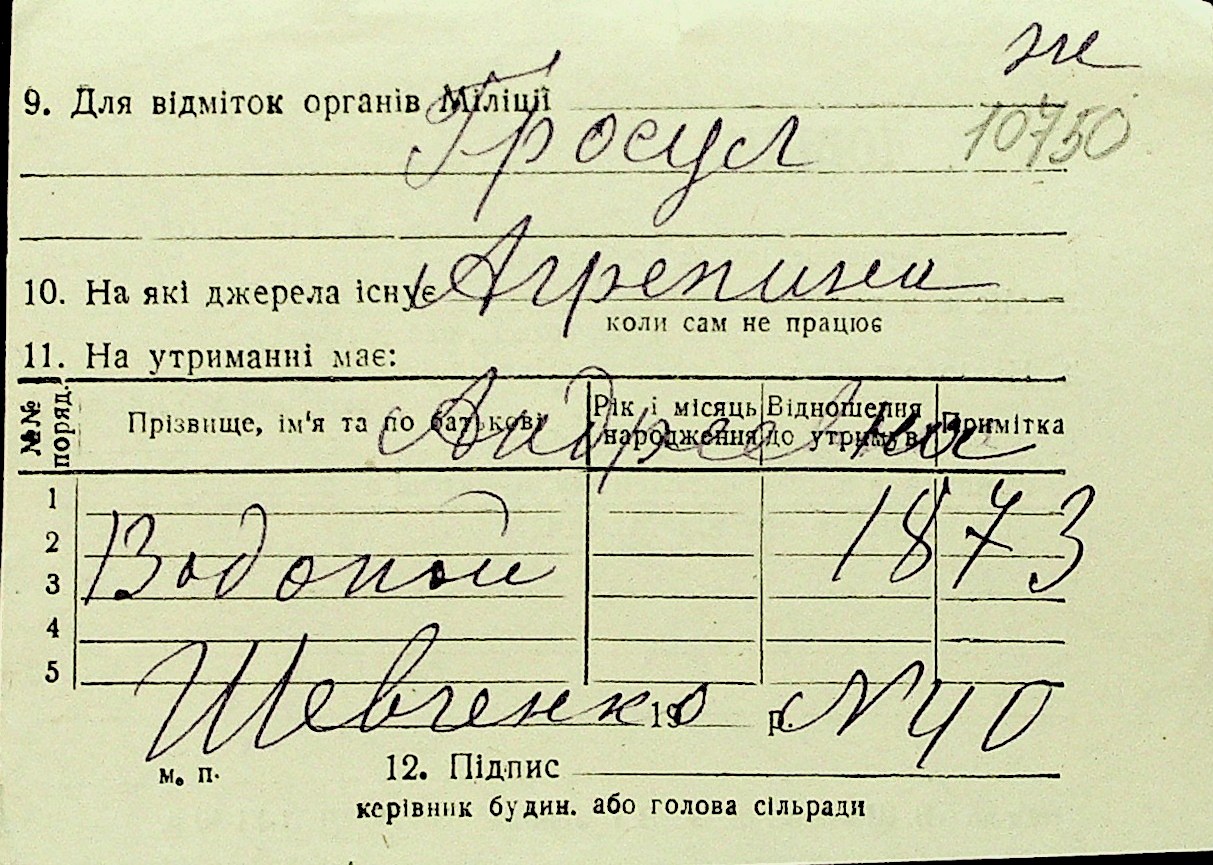 же
9. Для відміток органів Міліції
Гросул
10750
10. На які джерела існує
Агрепина
коли сам не працює
11. На утриманні має:
№№ поряд. Прізвище, ім'я та по батькові Рік і місяць народження Відношення до утримув. Примітка
Андреевна
1
1873
2
Водопой
3
4
5
Шевченко N 40
19 р.
м. п. 12. Підпис
керівник будин. або голова сільради